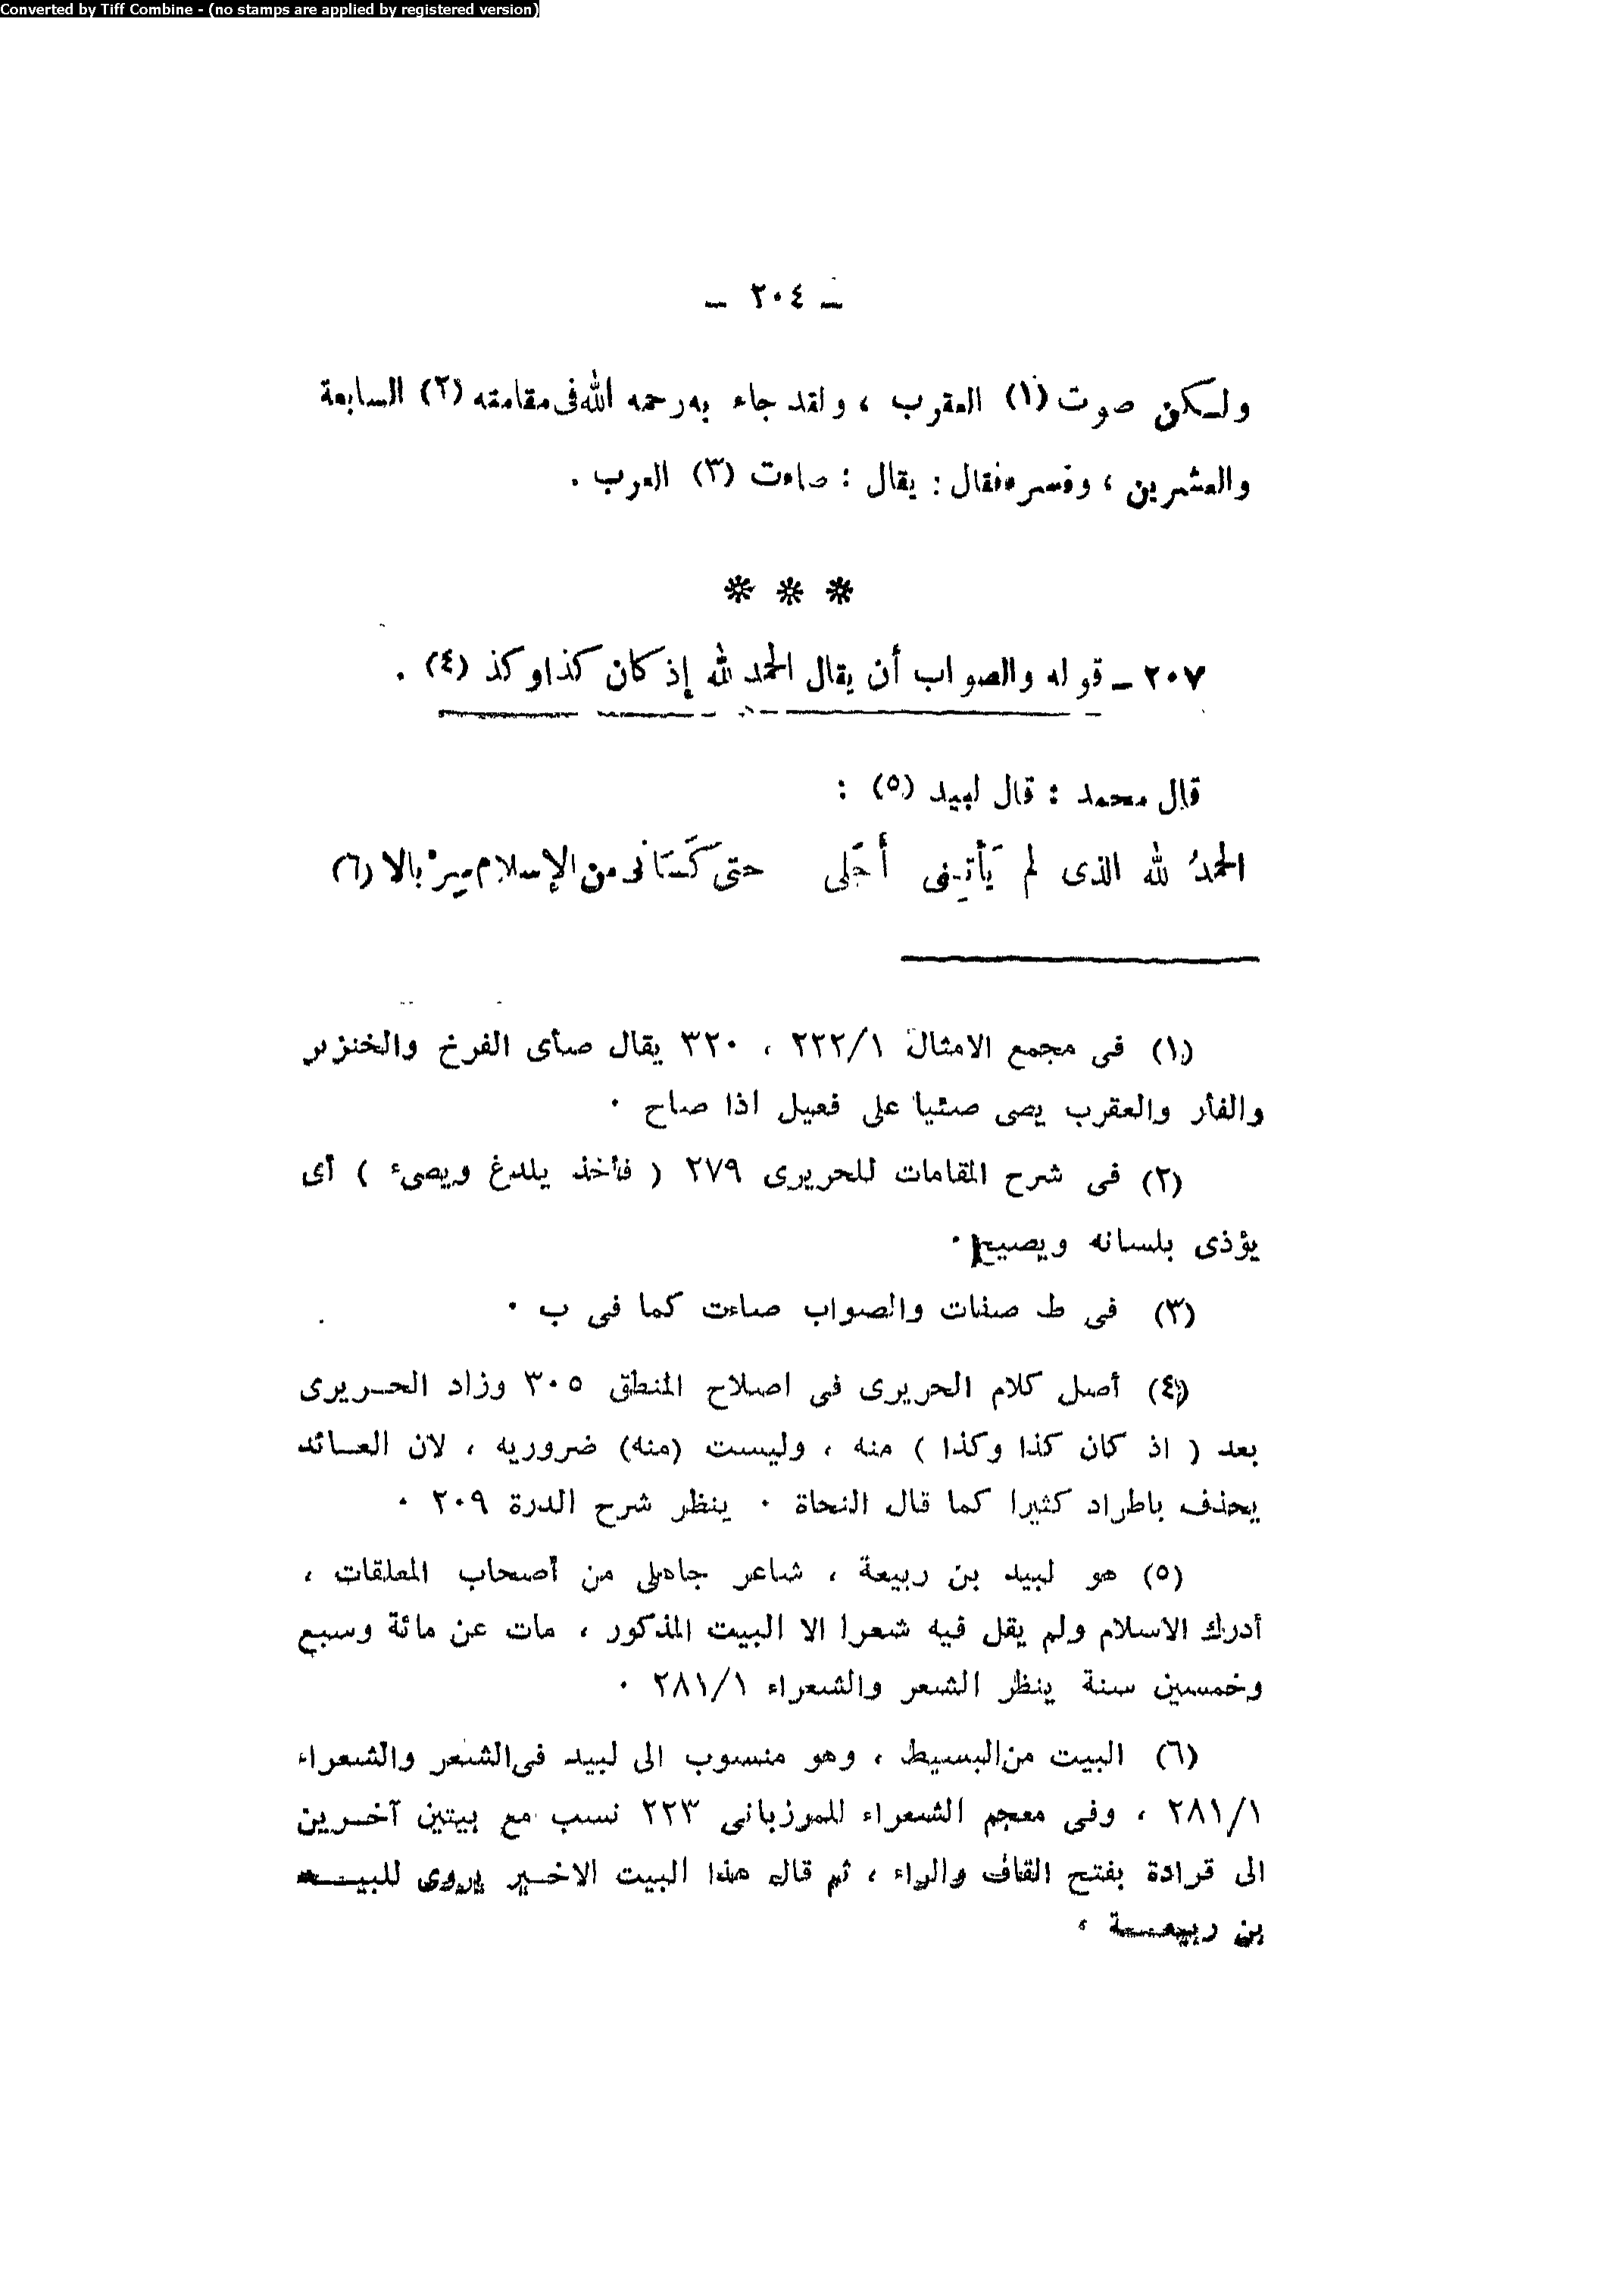 Converted by Tiff Combine - (no stamps are applied by registered version)
– ٢٠٤ –
ولكن صوت (١) العقرب ، ولقد جاء به رحمه الله فى مقامته (٢) السابعة
والعشرين ، وفسره فقال : يقال : صاءت (٣) العرب .
* * *
٢٠٧ – قوله والصواب أن يقال الحمد لله إذ كان كذا وكذ (٤) .
قال محمد : قال لبيد (٥) :
الحمدُ لله الذى لم يَأتِنى أَجَلى حتى كَسَانى من الإسلام سِرْبالا (٦)
(١) فى مجمع الامثال ٢٢٢/١ ، ٣٢٠ يقال صأى الفرخ والخنزير
والفأر والعقرب يصى صئيا على فعيل اذا صاح .
(٢) فى شرح المقامات للحريرى ٢٧٩ ( فأخذ يلدغ ويصىء ) أى
يؤذى بلسانه ويصيح .
(٣) فى ط صفات والصواب صاءت كما فى ب .
(٤) أصل كلام الحريرى فى اصلاح المنطق ٣٠٥ وزاد الحريرى
بعد ( اذ كان كذا وكذا ) منه ، وليست (منه) ضروريه ، لان العائد
يحذف باطراد كثيرا كما قال النحاة . ينظر شرح الدرة ٢٠٩ .
(٥) هو لبيد بن ربيعة ، شاعر جاهلى من أصحاب المعلقات ،
أدرك الاسلام ولم يقل فيه شعرا الا البيت المذكور ، مات عن مائة وسبع
وخمسين سنة ينظر الشعر والشعراء ٢٨١/١ .
(٦) البيت من البسيط ، وهو منسوب الى لبيد فى الشعر والشعراء
٢٨١/١ ، وفى معجم الشعراء للمرزبانى ٢٢٣ نسب مع بيتين آخرين
الى قرادة بفتح القاف والراء ، ثم قال هذا البيت الاخير يروى للبيد
بن ربيعة ،